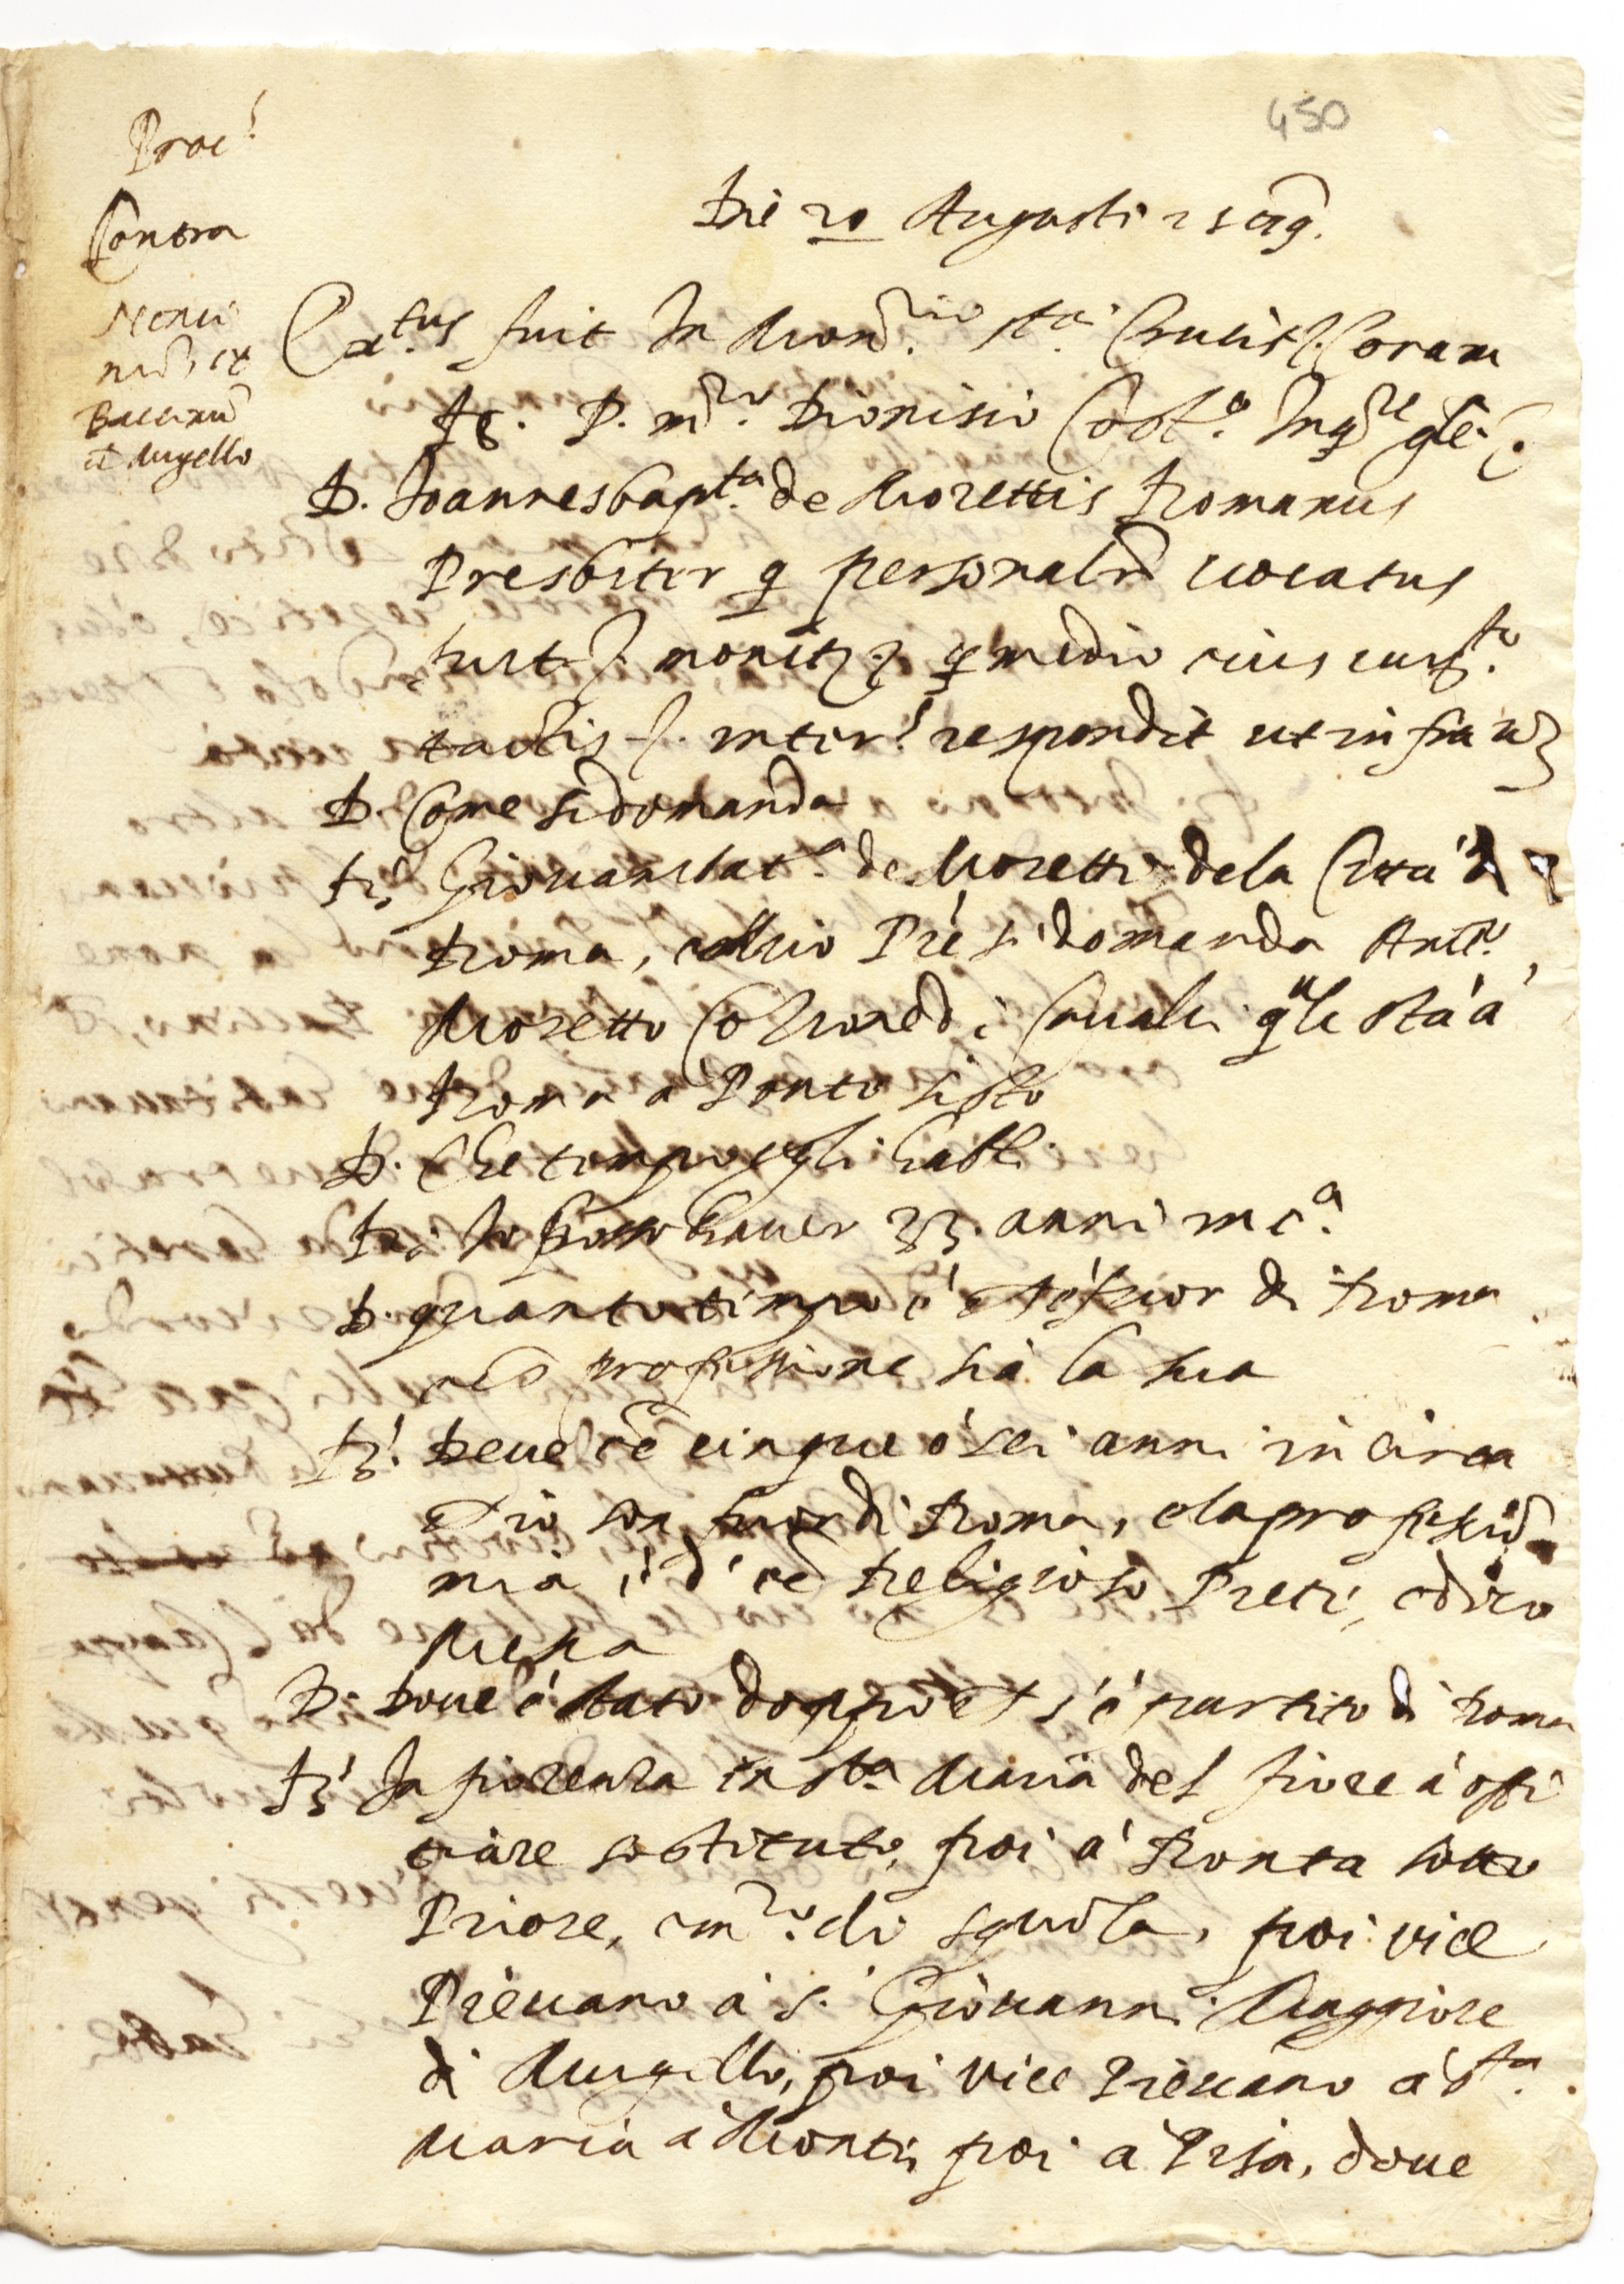 450
Proc.
Contra
Die 20 Augusti
fuit in Mon.rio s.ta Crucis Coram
R. P. m.ro Dionisio Inq.re g̃le
D. Joannesbap.ta de Morettis Romanus
Presbiter q personalr̃ vocatus
fuit monit p medio eius iur.to
tactis inter. respondit ut infra
D. Come si domanda
R. Giovanbat.a de Moretti dela Città d
Roma, e mio Pre si domanda Ant.o
Moretto Corali q̃le stà à
Roma a Ponte sisto
D. Che tempo egli habbi
R. Io posso haver 33. anni in c.a
D. quanto tempo è ch'è fuor di Roma
e ch̃ professione sia la sua
R. Deue eẽ cinque ó sei anni in circa
ch'io son fuor di Roma, e la professiõ
mia è d' eẽ Religioso Prete, e dico
Messa
D. Doue è stato doppo ch' s'è partito di Roma
R. In fiorenza in s.ta Maria del fiore à offi
tiare sostituto, poi à Ronta sotto
Priore, e m.ro di squola, poi vice
Pieuano à s. Giouanni Maggiore
di Mugello, poi vice Pieuano à s.ta
Maria à Monti, poi à Pisa, doue